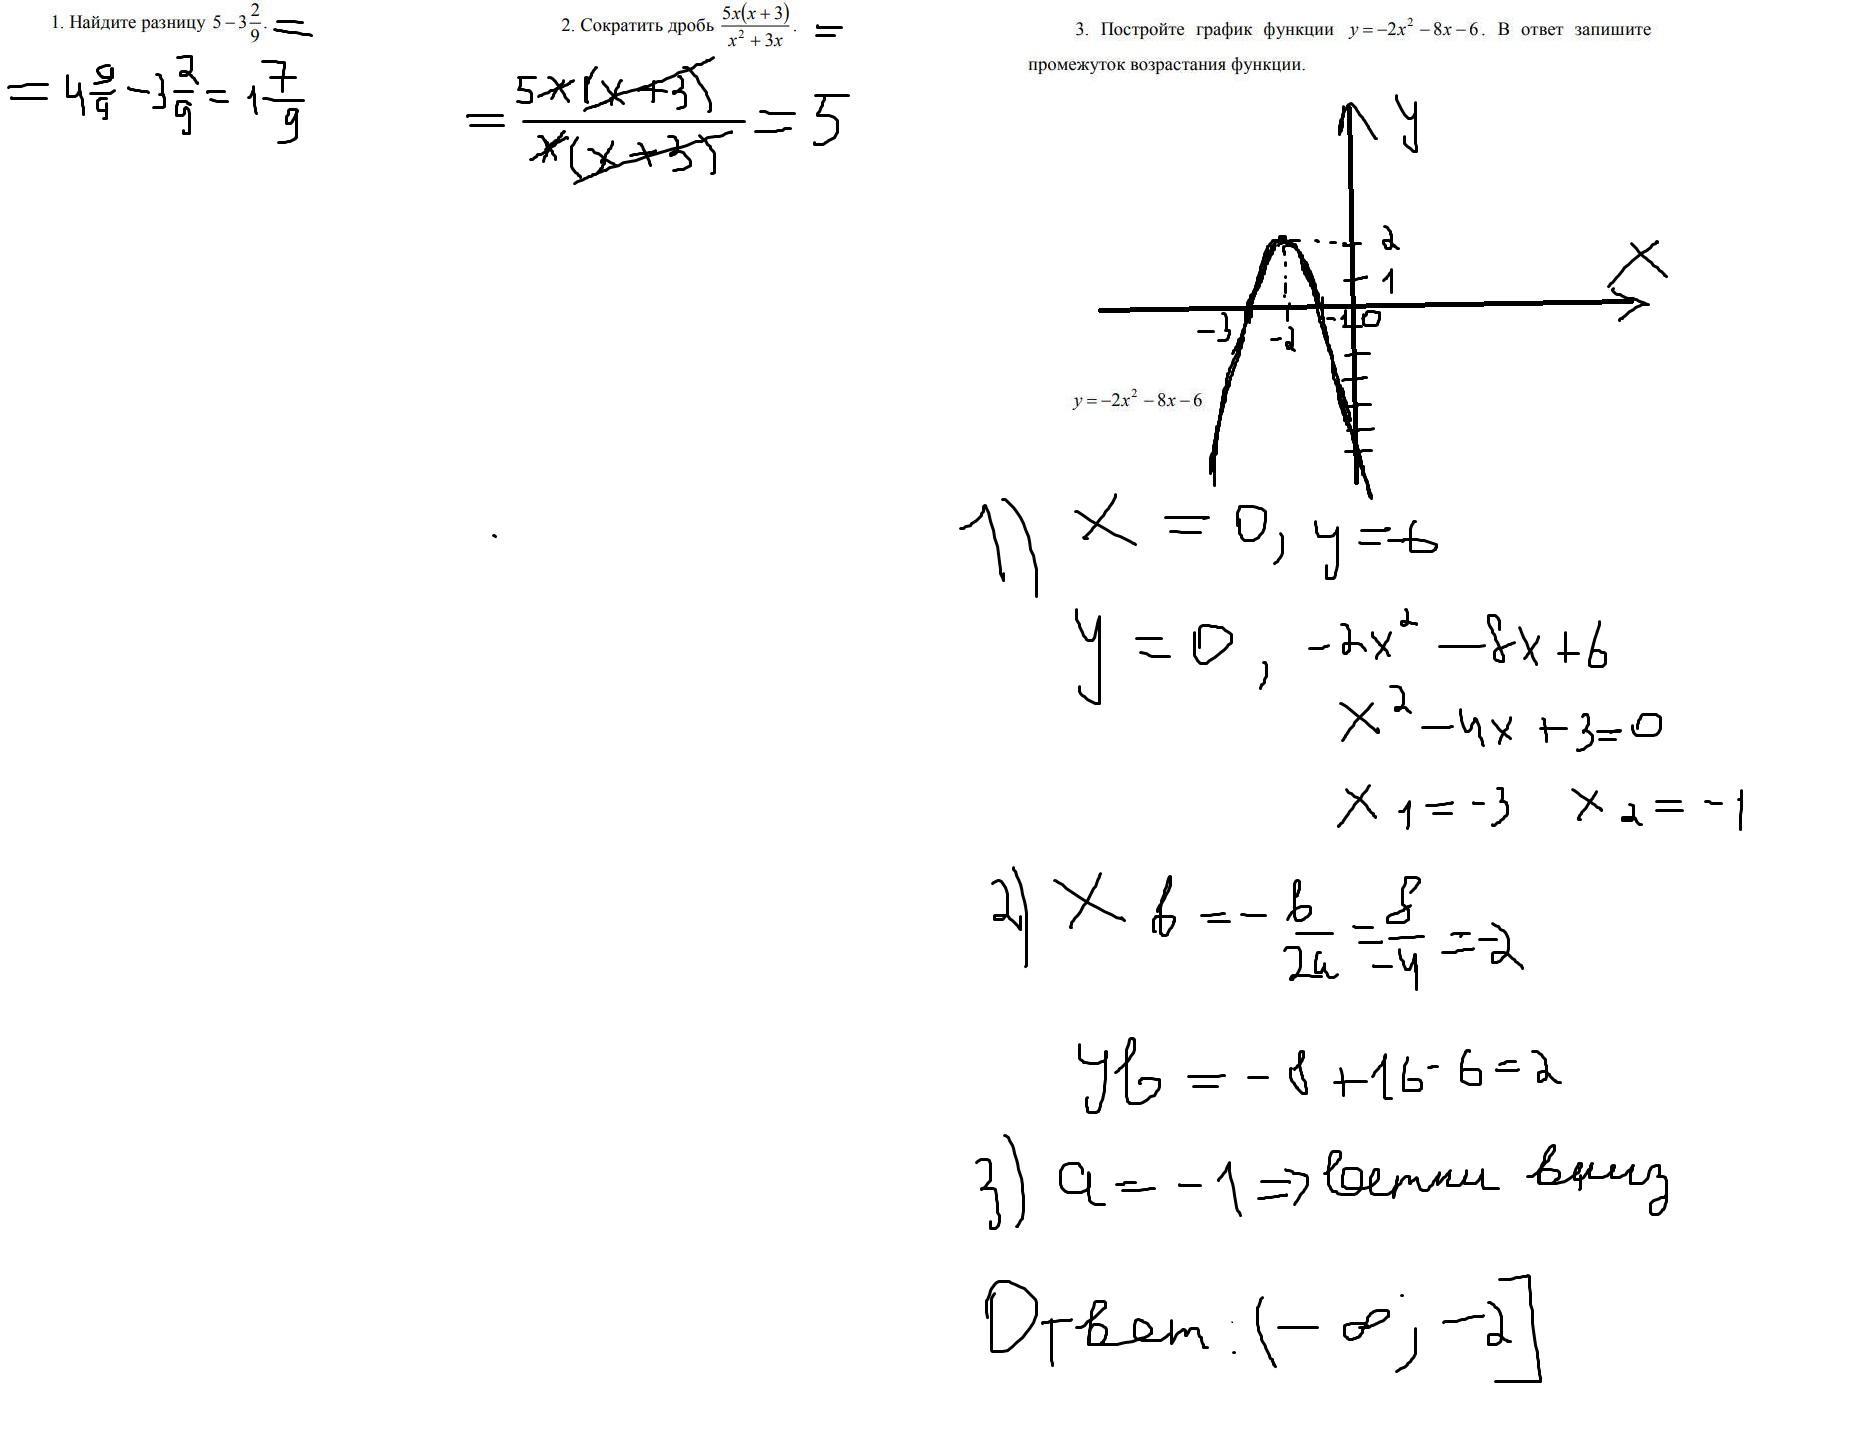 1. Найдите разницу 5 − 3 2/9. =
= 4 9/9 − 3 2/9 = 1 7/9
2. Сократить дробь 5x(x + 3)/x² + 3x. =
= 5x(x+3)/x(x+3) = 5
3. Постройте график функции y = −2x² − 8x − 6. В ответ запишите
промежуток возрастания функции.
y
2
x
1
-3
-2
-1
0
y = −2x² − 8x − 6
1) x = 0, y = -6
y = 0, -2x² - 8x + 6
x² - 4x + 3 = 0
x1 = -3 x2 = -1
2) xв = - b/2a = 8/-4 = -2
yв = - 8 + 16 - 6 = 2
3) a = - 1 => ветви вниз
Ответ: (- ∞; -2]